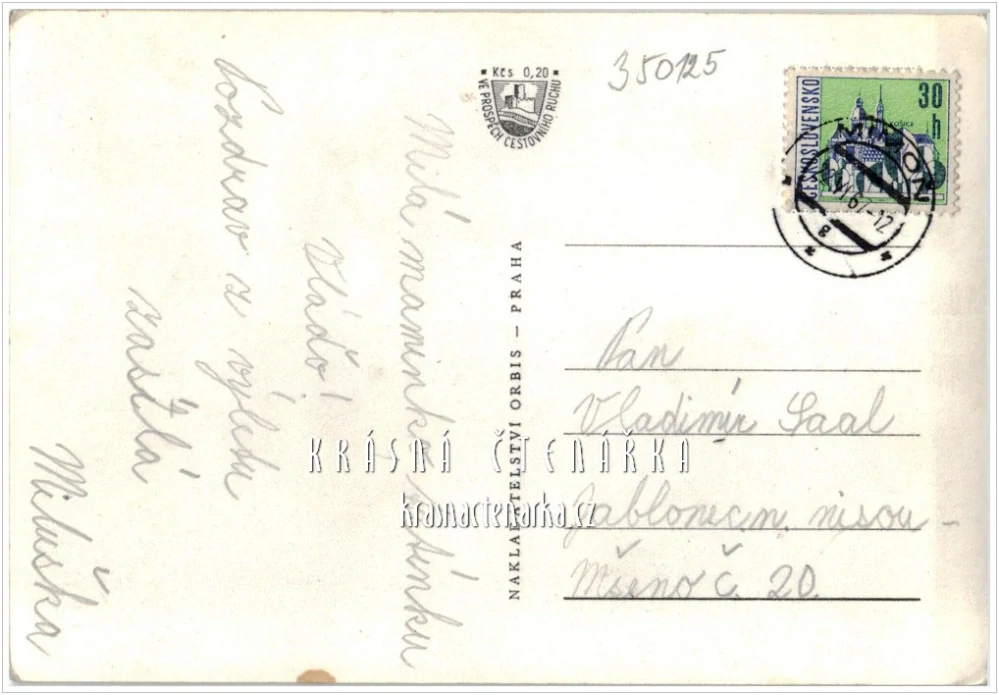 Milá maminko, tatínku
Vláďo!
Pozdrav z výletu
zasílá
Miluška
Kčs 0,20
VE PROSPĚCH CESTOVNÍHO RUCHU
350125
ČESKOSLOVENSKO
30 h
KOŠICE
MIMOŇ
VI 67-12
NAKLADATELSTVÍ ORBIS – PRAHA
Pan
Vladimír Saal
Jablonec n. nisou –
Mšeno č. 20.
KRÁSNÁ ČTENÁŘKA
krasnactenarka.cz